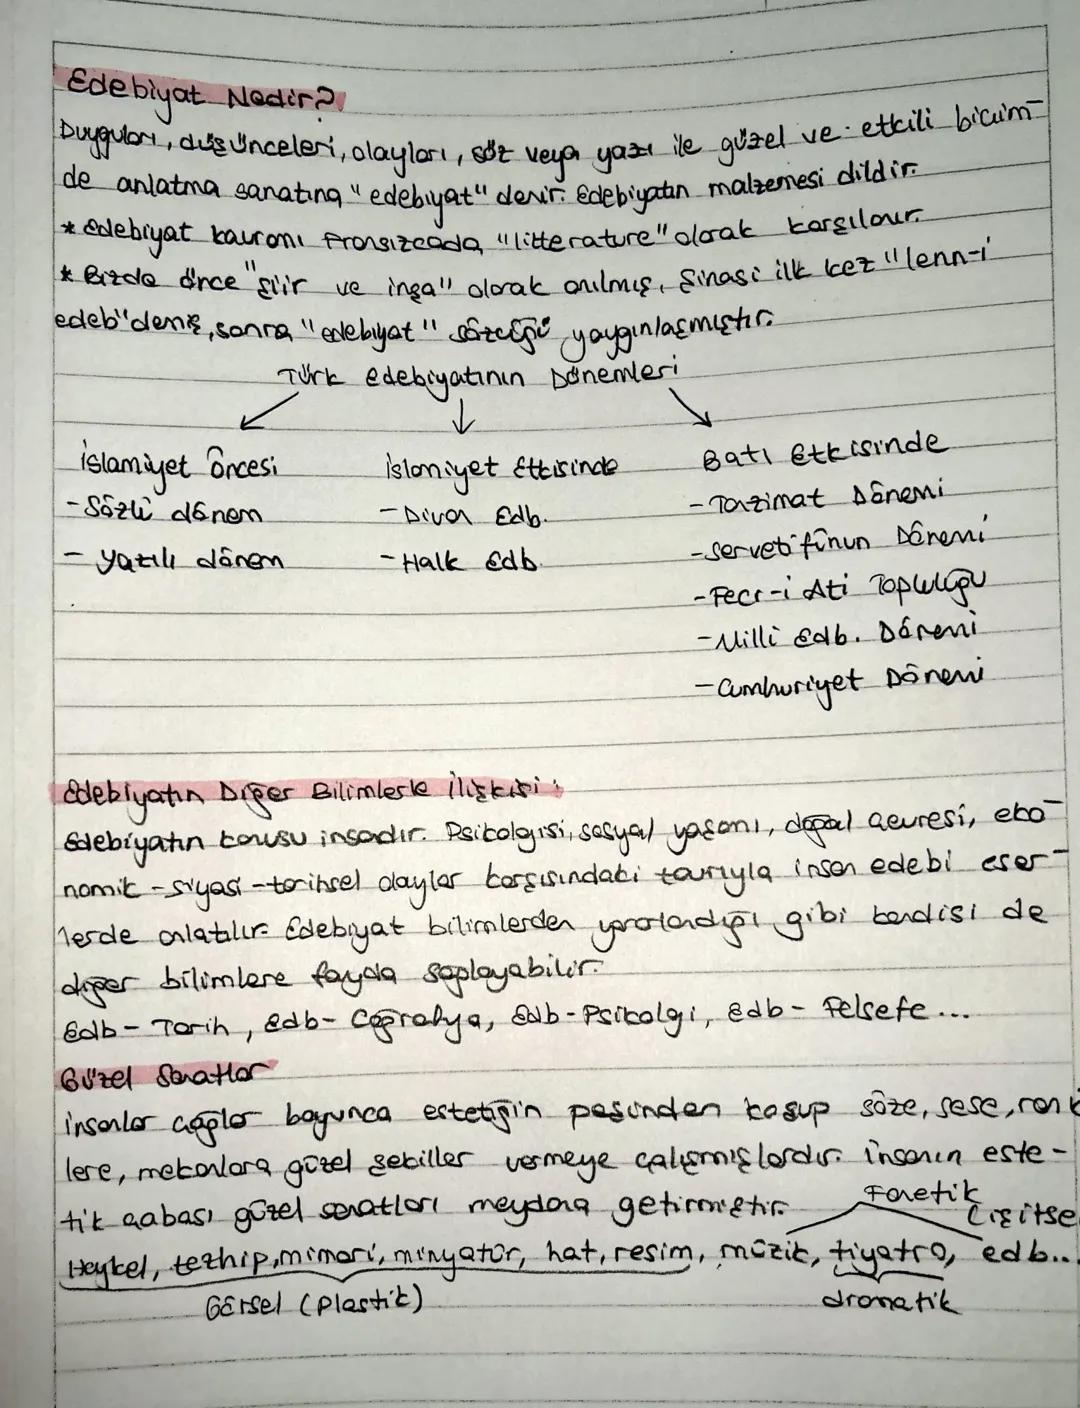 Edebiyat Nedir?
Duyguları, düşünceleri, olayları, söz veya yazı ile güzel ve etkili biçim-
de anlatma sanatına "edebiyat" denir. Edebiyatın malzemesi dildir.
* Edebiyat kavramı Fransızcada "litterature" olarak karşılanır.
* Bizde önce "şiir ve inşa" olarak anılmış, Şinasi ilk kez "lenn-i
edeb" demiş, sonra "edebiyat" sözcüğü yaygınlaşmıştır.
Türk edebiyatının Dönemleri
İslamiyet Öncesi İslamiyet Etkisinde Batı Etkisinde
- Sözlü dönem - Divan Edb. - Tanzimat Dönemi
- Yazılı dönem - Halk Edb. - Servetifünun Dönemi
- Fecr-i Ati Topluluğu
- Milli Edb. Dönemi
- Cumhuriyet Dönemi
Edebiyatın Diğer Bilimlerle İlişkisi:
Edebiyatın konusu insandır. Psikolojisi, sosyal yaşamı, doğal çevresi, eko-
nomik - siyasi - tarihsel olaylar karşısındaki tavrıyla insan edebi eser-
lerde anlatılır. Edebiyat bilimlerden yararlandığı gibi kendisi de
diğer bilimlere fayda sağlayabilir.
Edb - Tarih, Edb - Coğrafya, Edb - Psikoloji, Edb - Felsefe ...
Güzel Sanatlar
İnsanlar çağlar boyunca estetiğin peşinden koşup söze, sese, renk
lere, mekanlara güzel şekiller vermeye çalışmışlardır. İnsanın este-
tik çabası güzel sanatları meydana getirmiştir.
Fonetik
(işitse
Heykel, tezhip, mimari, minyatür, hat, resim, müzik, tiyatro, edb...
Görsel (Plastik) dramatik